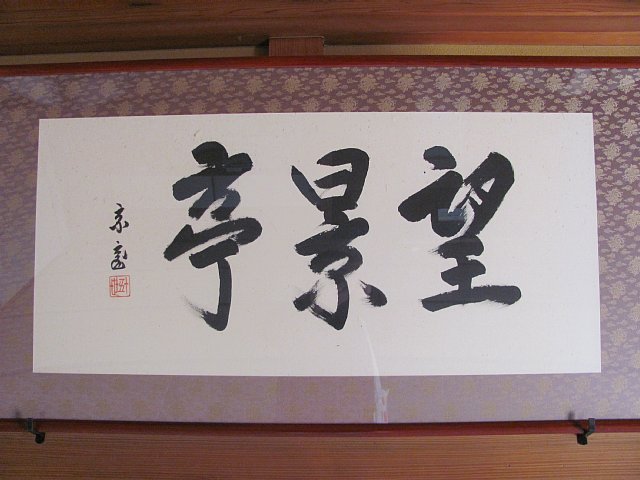 望景亭